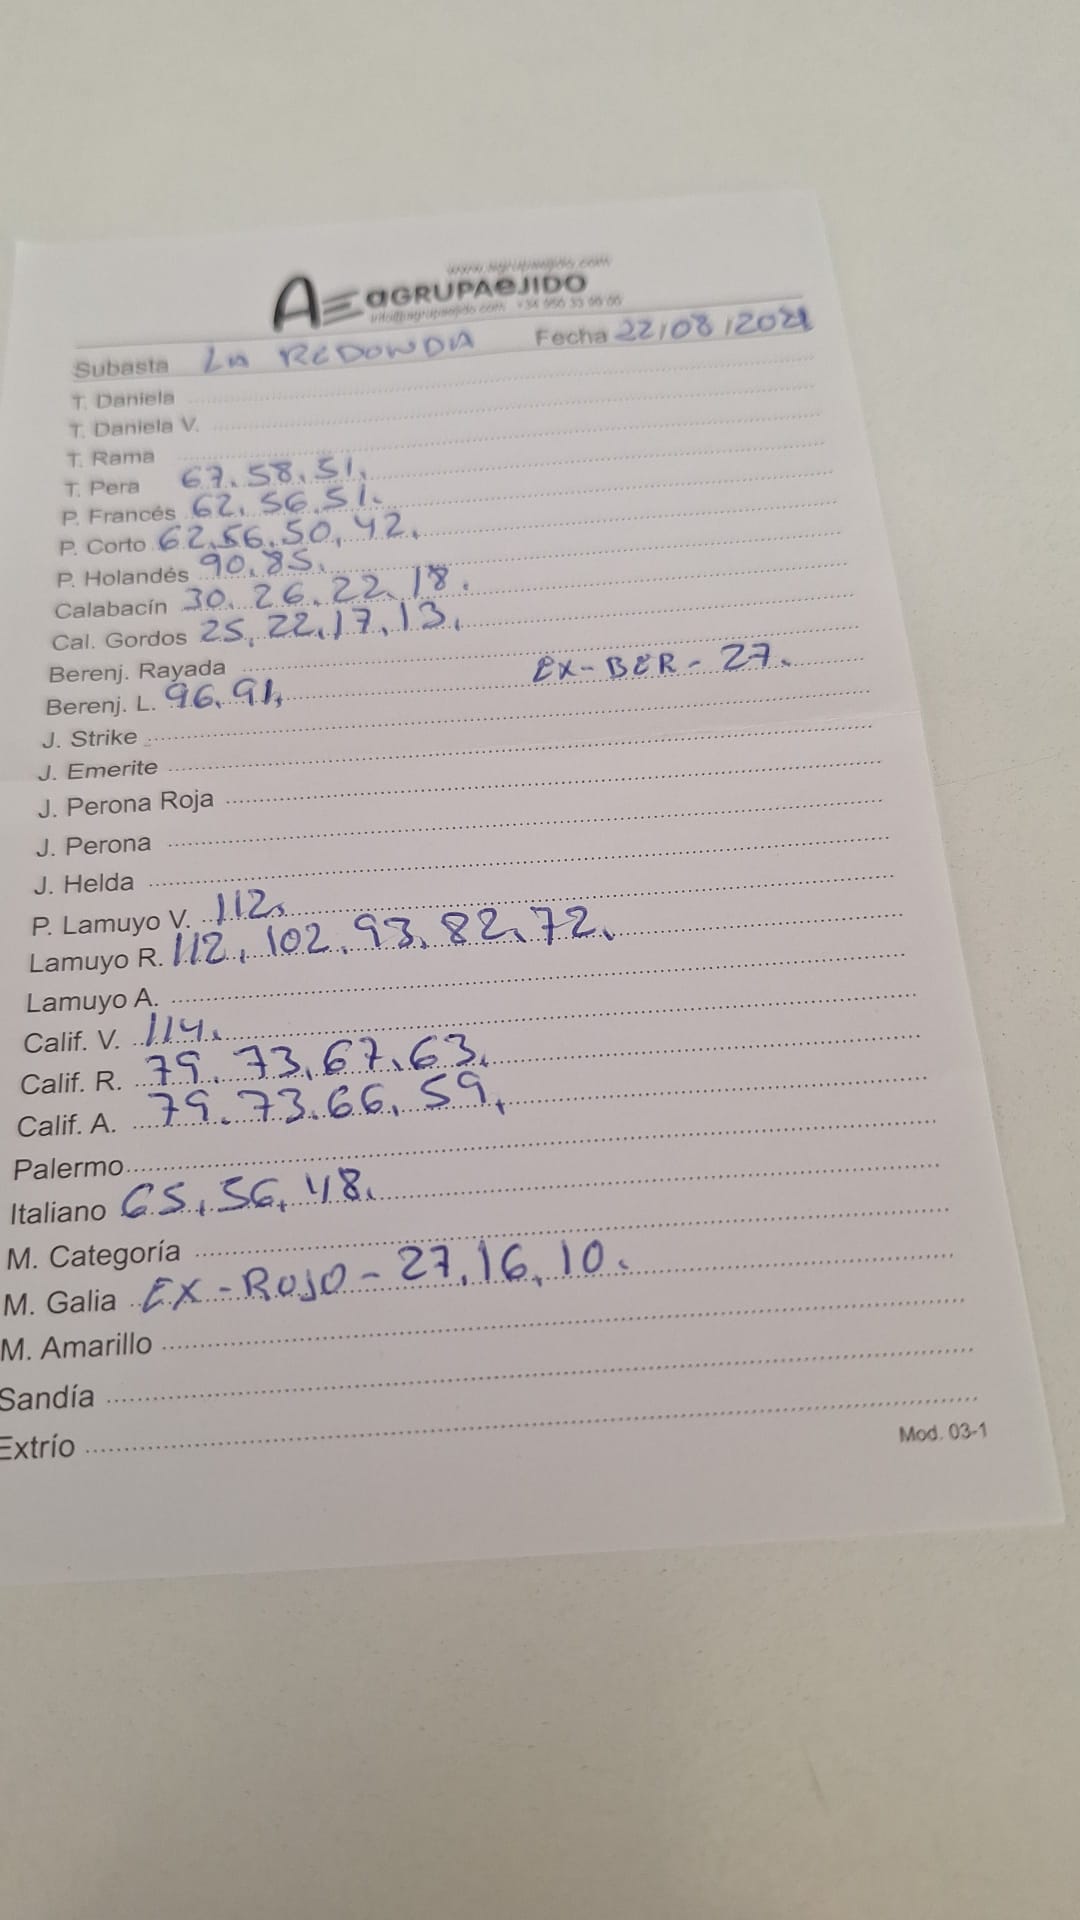 www.agrupaejido.com
AE aGRUPAeJIDO
info@agrupaejido.com +34 950 33 00 00
Subasta LA REDONDA Fecha 22/08/2021
T. Daniela
T. Daniela V.
T. Rama
T. Pera 67, 58, 51,
P. Francés 62, 56, 51.
P. Corto 62, 56, 50, 42,
P. Holandés 90, 85,
Calabacín 30, 26, 22, 18.
Cal. Gordos 25, 22, 17, 13,
Berenj. Rayada
EX-BER- 27.
Berenj. L. 96, 91,
J. Strike
J. Emerite
J. Perona Roja
J. Perona
J. Helda
P. Lamuyo V. 112,
Lamuyo R. 112, 102, 93, 82, 72,
Lamuyo A.
Calif. V. 114,
Calif. R. 79, 73, 67, 63,
Calif. A. 79, 73, 66, 59,
Palermo
Italiano 65, 56, 48,
M. Categoría
M. Galia EX-ROJO- 27, 16, 10.
M. Amarillo
Sandía
Extrío
Mod. 03-1